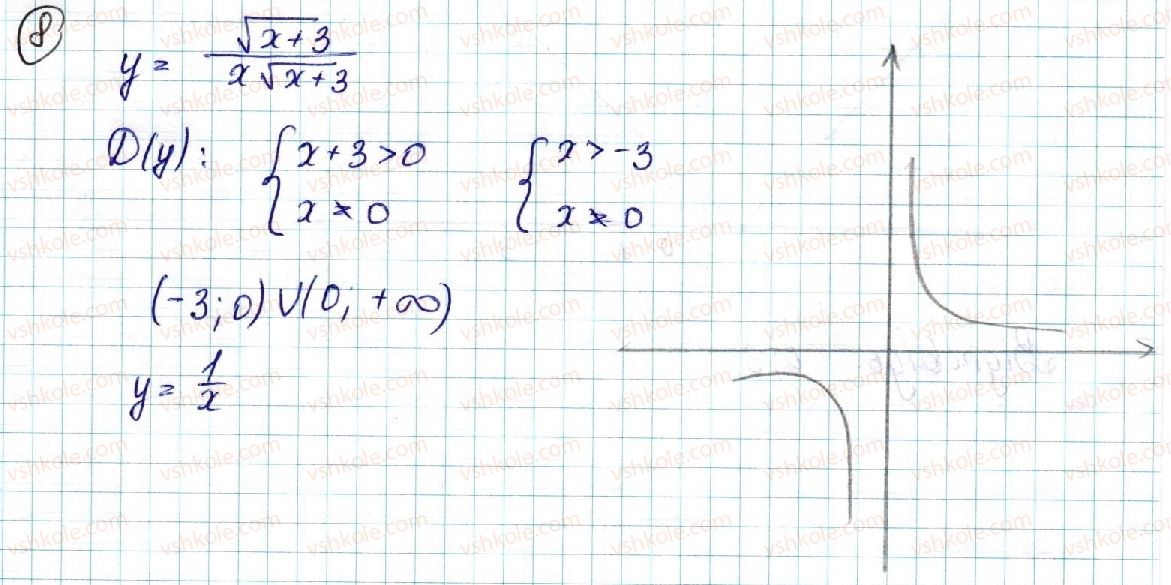 8
y = √(x+3) / x√(x+3)
D(y): { x+3>0 { x>-3
x≠0 x≠0
(-3; 0) ∪ (0; +∞)
y = 1/x
vshkole.com